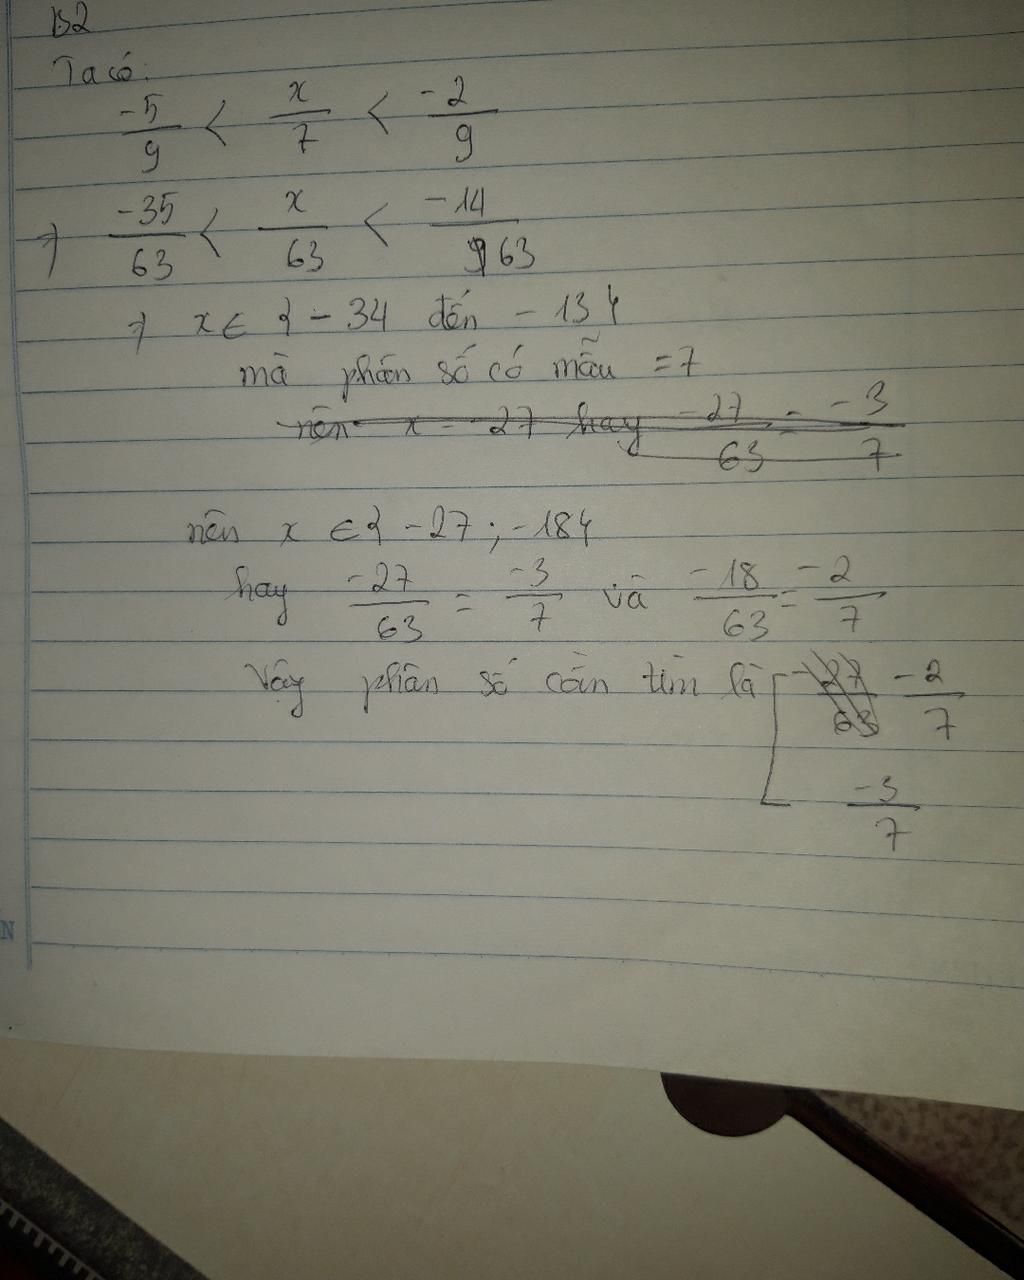 B2
Ta có:
-5/9 < x/7 < -2/9
⇒ -35/63 < x/63 < -14/63
⇒ x ∈ {-34 đến -13}
mà phân số có mẫu = 7
nên x = -27 hay -27/63 = -3/7
nên x ∈ {-27; -18}
hay -27/63 = -3/7 và -18/63 = -2/7
Vậy phân số cần tìm là [ -27/63 -2/7
-3/7
N